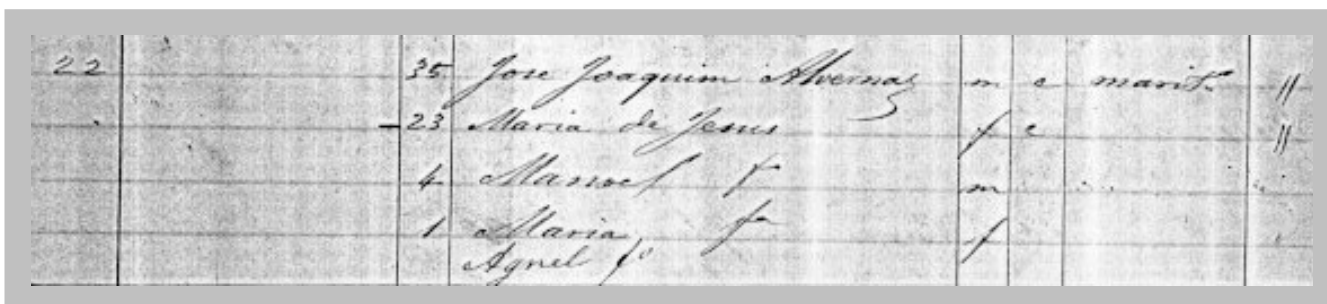 22 35 Jose Joaquim Alvernaz m c marit. "
23 Maria de Jesus f c "
4 Manoel f m
1 Maria fa f
Agnel fo